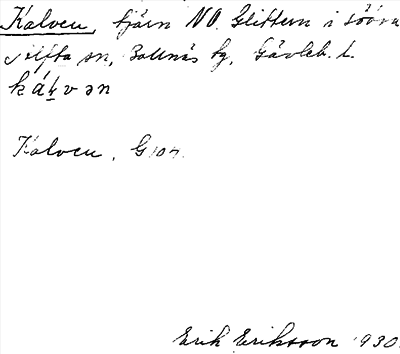 Kalven, tjärn NO. Glittern i södra
Alfta sn, Bollnäs tg, Gävleb. l.
kálvən
Kalven, G
Erik Eriksson 1930